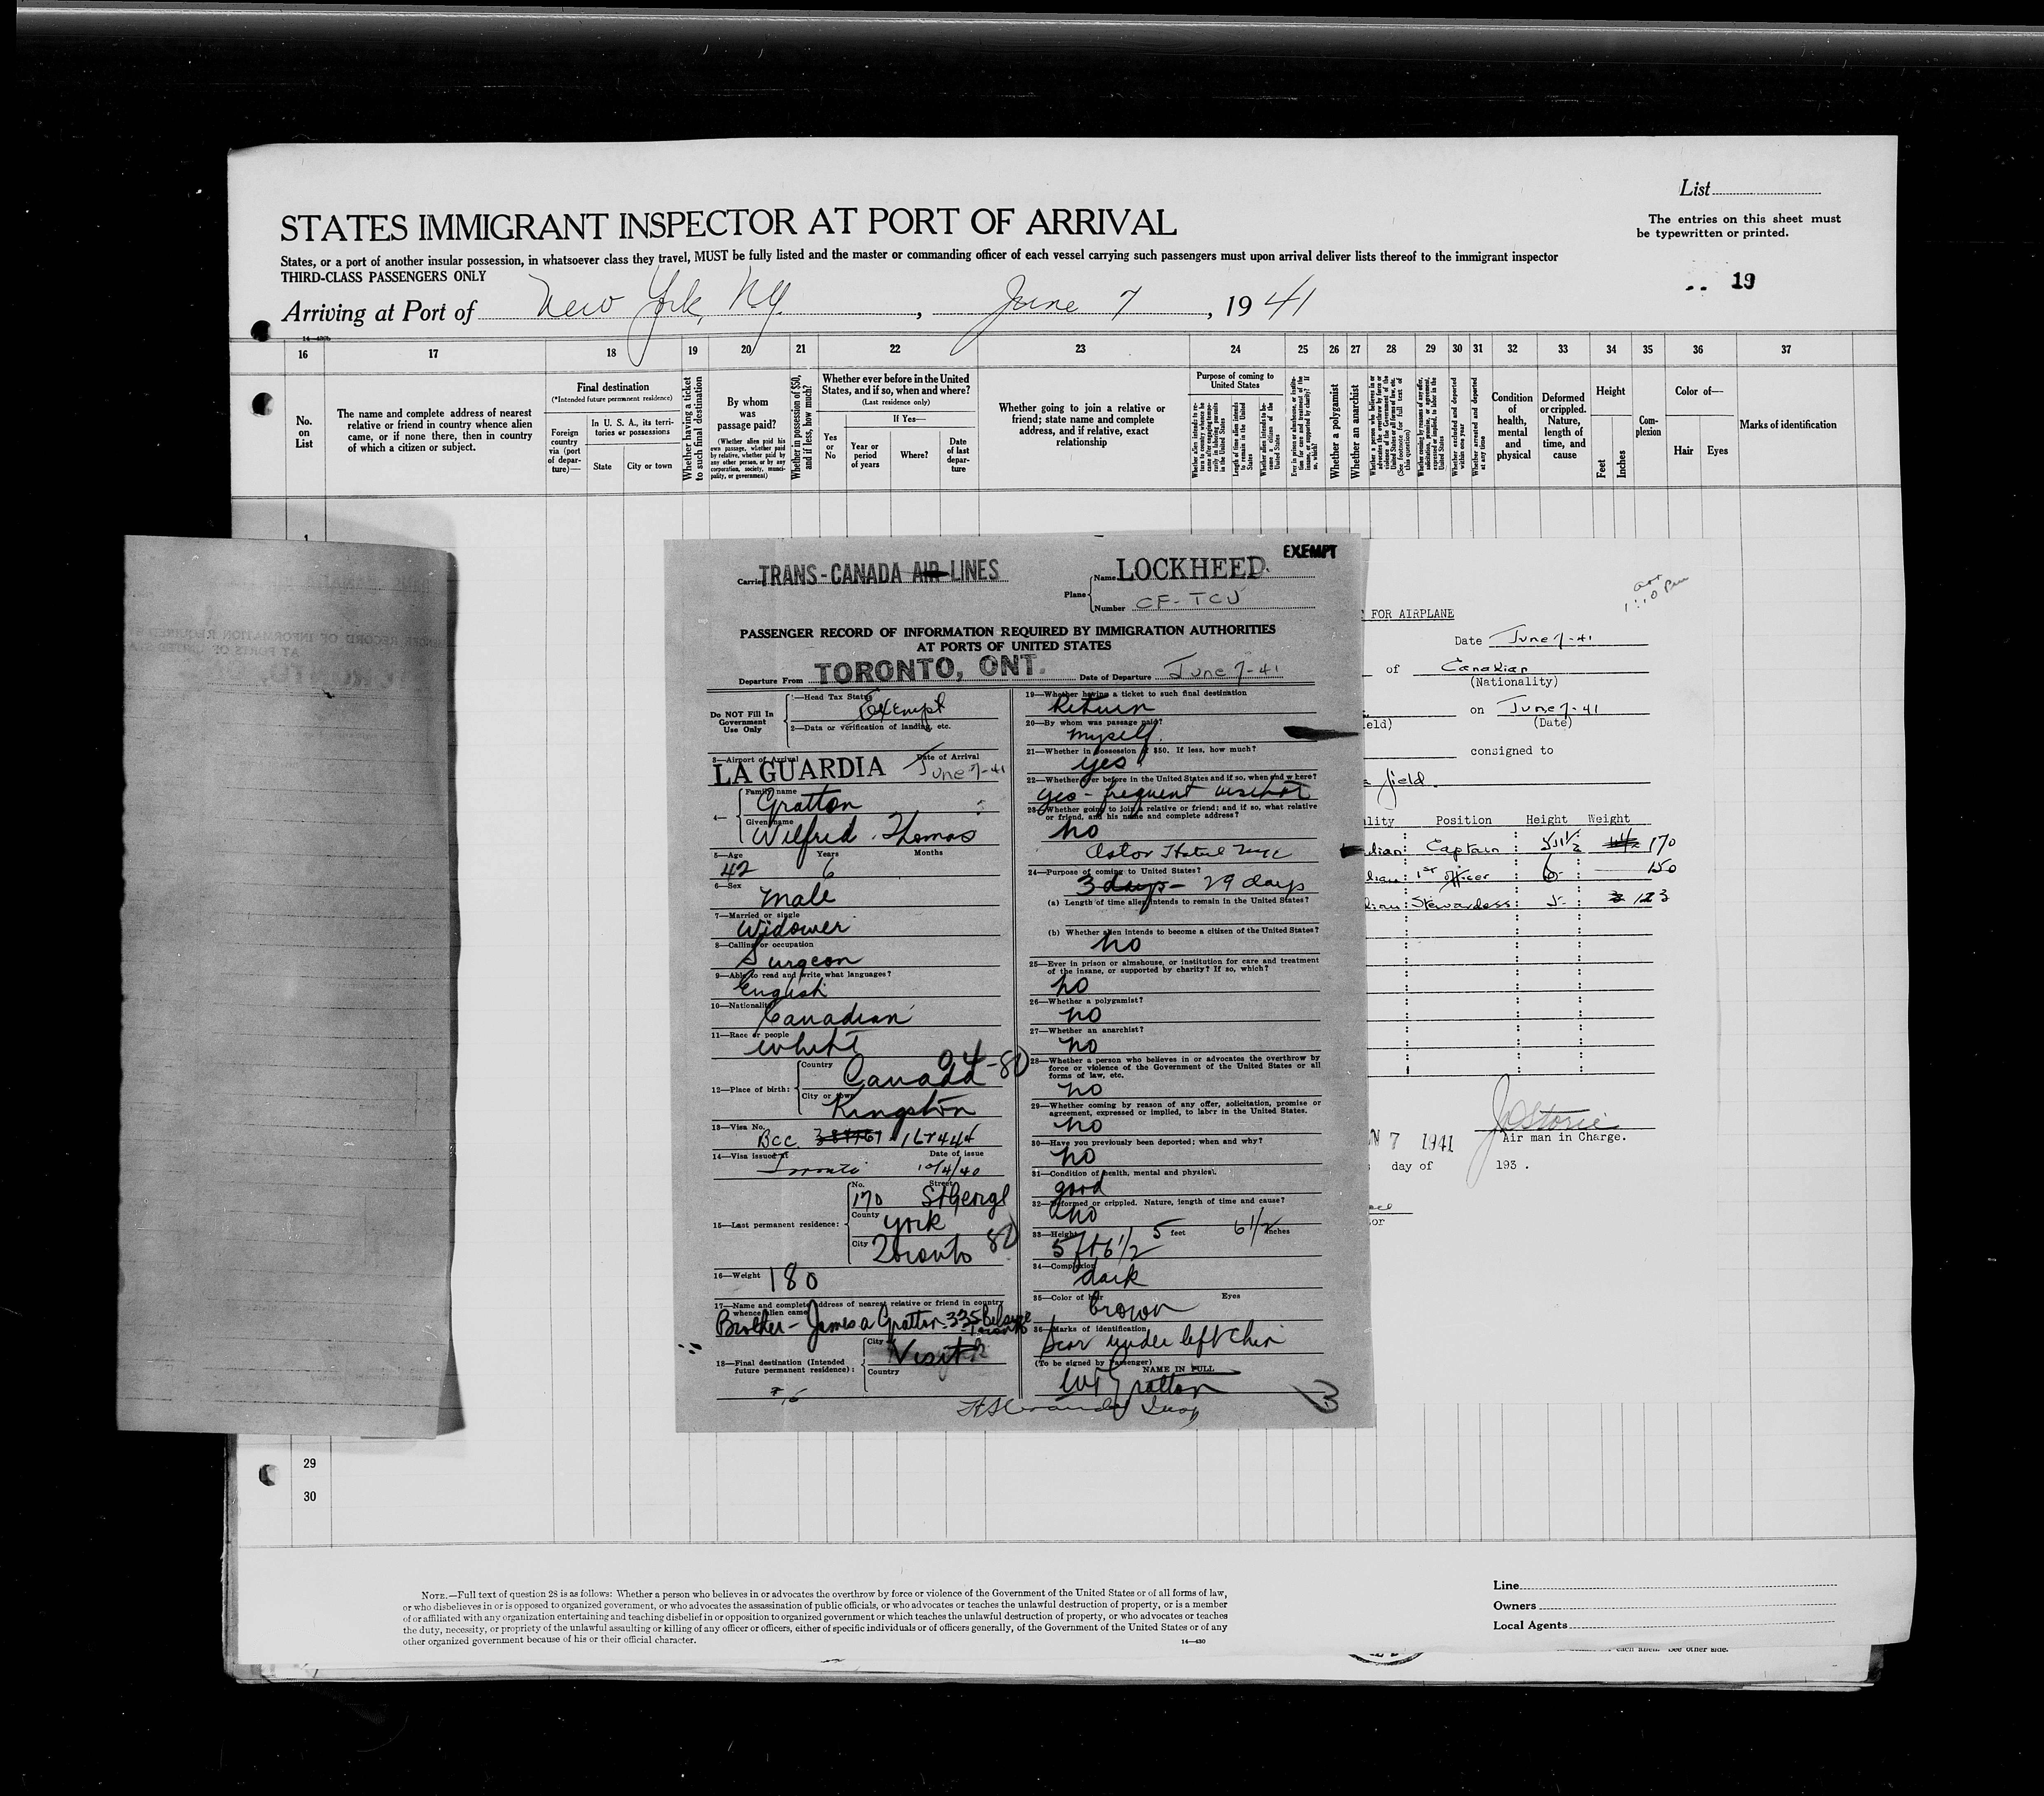 List
STATES IMMIGRANT INSPECTOR AT PORT OF ARRIVAL
The entries on this sheet must
be typewritten or printed.
States, or a port of another insular possession, in whatsoever class they travel, MUST be fully listed and the master or commanding officer of each vessel carrying such passengers must upon arrival deliver lists thereof to the immigrant inspector
THIRD-CLASS PASSENGERS ONLY
19
Arriving at Port of New York, NY. , June 7 , 1941
16 17 18 19 20 21 22 23 24 25 26 27 28 29 30 31 32 33 34 35 36 37
No.
on
List
The name and complete address of nearest
relative or friend in country whence alien
came, or if none there, then in country
of which a citizen or subject.
Final destination
(*Intended future permanent residence)
Foreign
country
via (port
of depar-
ture)—
In U. S. A., its terri-
tories or possessions
State
City or town
Whether having a ticket
to such final destination
By whom
was
passage paid?
(Whether alien paid his
own passage, whether paid
by relative, whether paid by
any other person, or by any
corporation, society, munici-
pality, or government)
Whether in possession of $50,
and if less, how much?
Whether ever before in the United
States, and if so, when and where?
(Last residence only)
Yes
or
No
If Yes—
Year or
period
of years
Where?
Date
of last
depar-
ture
Whether going to join a relative or
friend; state name and complete
address, and if relative, exact
relationship
Purpose of coming to
United States
Length of time alien intends
to remain in the United
States
Whether alien intends to be-
come a citizen of the
United States
Whether a polygamist
Whether an anarchist
Whether excluded and deported
within one year
Whether arrested and deported
at any time
Condition
of
health,
mental
and
physical
Deformed
or crippled.
Nature,
length of
time, and
cause
Height
Feet
Inches
Com-
plexion
Color of—
Hair
Eyes
Marks of identification
EXEMPT
Carrier TRANS-CANADA AIR LINES
Plane
Name LOCKHEED.
Number CF-TCU
PASSENGER RECORD OF INFORMATION REQUIRED BY IMMIGRATION AUTHORITIES
AT PORTS OF UNITED STATES
Departure From TORONTO, ONT. Date of Departure June 7-41
Do NOT Fill In
Government
Use Only
1—Head Tax Status
Exempt
2—Data or verification of landing, etc.
3—Airport of Arrival
Date of Arrival
LA GUARDIA June 7-41
4—
Family name
Gratton
Given name
Wilfred Thomas
5—Age Years Months
42 6
6—Sex
Male
7—Married or single
Widower
8—Calling or occupation
Surgeon
9—Able to read and write what languages?
English
10—Nationality
Canadian
11—Race or people
white
04-80
12—Place of birth:
Country
Canada
City or town
Kingston
13—Visa No.
BCC
14—Visa issued at Date of issue
Toronto
15—Last permanent residence:
No. Street
170 St George
County
York
City
Toronto
16—Weight 180
17—Name and complete address of nearest relative or friend in country
whence alien came
Brother - James A Gratton. 335
Toronto
18—Final destination (Intended
future permanent residence):
City
Visit
Country
19—Whether having a ticket to such final destination
Return
20—By whom was passage paid?
myself.
21—Whether in possession of $50. If less, how much?
yes
22—Whether ever before in the United States and if so, when and where?
yes - frequent visitor
23—Whether going to join a relative or friend; and if so, what relative
or friend, and his name and complete address?
no
Astor Hotel NYC
24—Purpose of coming to United States?
3 days - 29 days
(a) Length of time alien intends to remain in the United States?
(b) Whether alien intends to become a citizen of the United States?
no
25—Ever in prison or almshouse, or institution for care and treatment
of the insane, or supported by charity? If so, which?
no
26—Whether a polygamist?
no
27—Whether an anarchist?
no
28—Whether a person who believes in or advocates the overthrow by
force or violence of the Government of the United States or all
forms of law, etc.
no
29—Whether coming by reason of any offer, solicitation, promise or
agreement, expressed or implied, to labor in the United States.
no
30—Have you previously been deported; when and why?
no
31—Condition of health, mental and physical.
good
32—Deformed or crippled. Nature, length of time and cause?
no
33—Height 5 feet 6 1/2 inches
5 ft 6 1/2
34—Complexion
dark
35—Color of hair Eyes
brown
36—Marks of identification
Scar under left chin
(To be signed by Passenger)
NAME IN FULL
WT Gratton
arr
1:10 Pm
FOR AIRPLANE
Date June 7-41
of Canadian
(Nationality)
on June 7-41
(Date)
consigned to
field.
Position Height Weight
Captain 5 11 1/2 170
1st officer 6 150
Stewardess 5 123
Air man in Charge.
7 1941
day of 193 .
29
30
NOTE.—Full text of question 28 is as follows: Whether a person who believes in or advocates the overthrow by force or violence of the Government of the United States or of all forms of law,
or who disbelieves in or is opposed to organized government, or who advocates the assassination of public officials, or who advocates or teaches the unlawful destruction of property, or is a member
of or affiliated with any organization entertaining and teaching disbelief in or opposition to organized government or which teaches the unlawful destruction of property, or who advocates or teaches
the duty, necessity, or propriety of the unlawful assaulting or killing of any officer or officers, either of specific individuals or of officers generally, of the Government of the United States or of any
other organized government because of his or their official character.
14—430
Line
Owners
Local Agents
See other side.